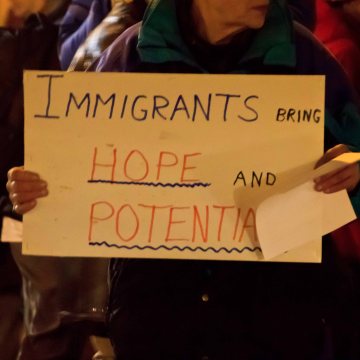 IMMIGRANTS BRING
HOPE AND
POTENTIA